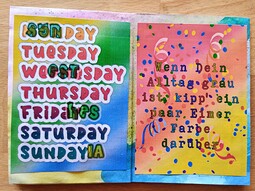 syn DAY
TUESDAY
WEDNESDAY est
THURSDAY
FRIDAY hes
SATURDAY
SUNDAY IA
Wenn Dein
Alltag grau
ist, kipp' ein
paar Eimer
Farbe
darüber